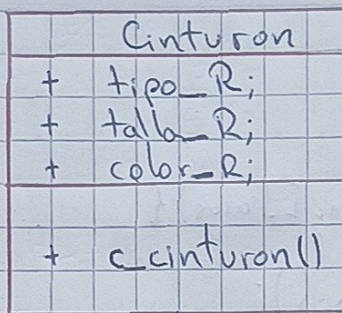 Cinturon
+ tipo_R;
+ talla_R;
+ color_R;
+ c_cinturon()